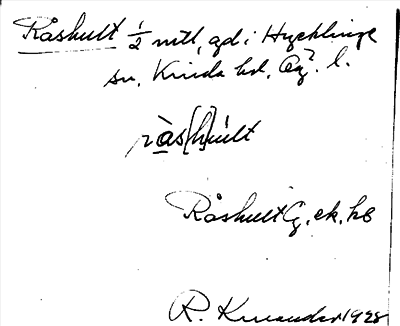 Råshult ½ mtl, gd i Hycklinge
sn, Kinda hd, Ög. l.
ràs[h]ult
Råshult Eg, ek, hb
R. Kinander 1928